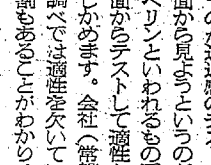 面から見ようというの
ペリンといわれるもの
面からテストして適性
しかめます。会社（常
調べでは適性を欠いて
割もあることがわかり